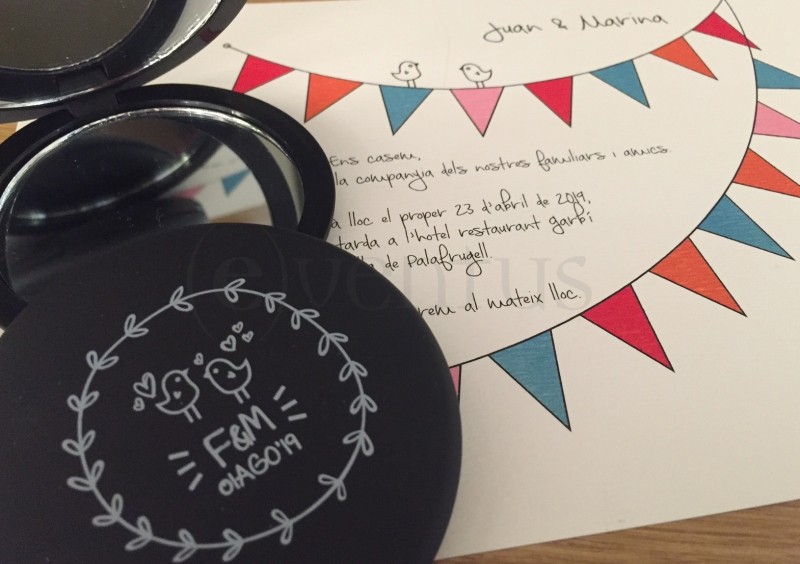 Juan & Marina
Ens casem,
la companyia dels nostres familiars i amics.
a lloc el proper 23 d'abril de 2019,
tarda a l'hotel restaurant garbí
de Palafrugell.
rem al mateix lloc.
eventus
F&M
01AGO'19